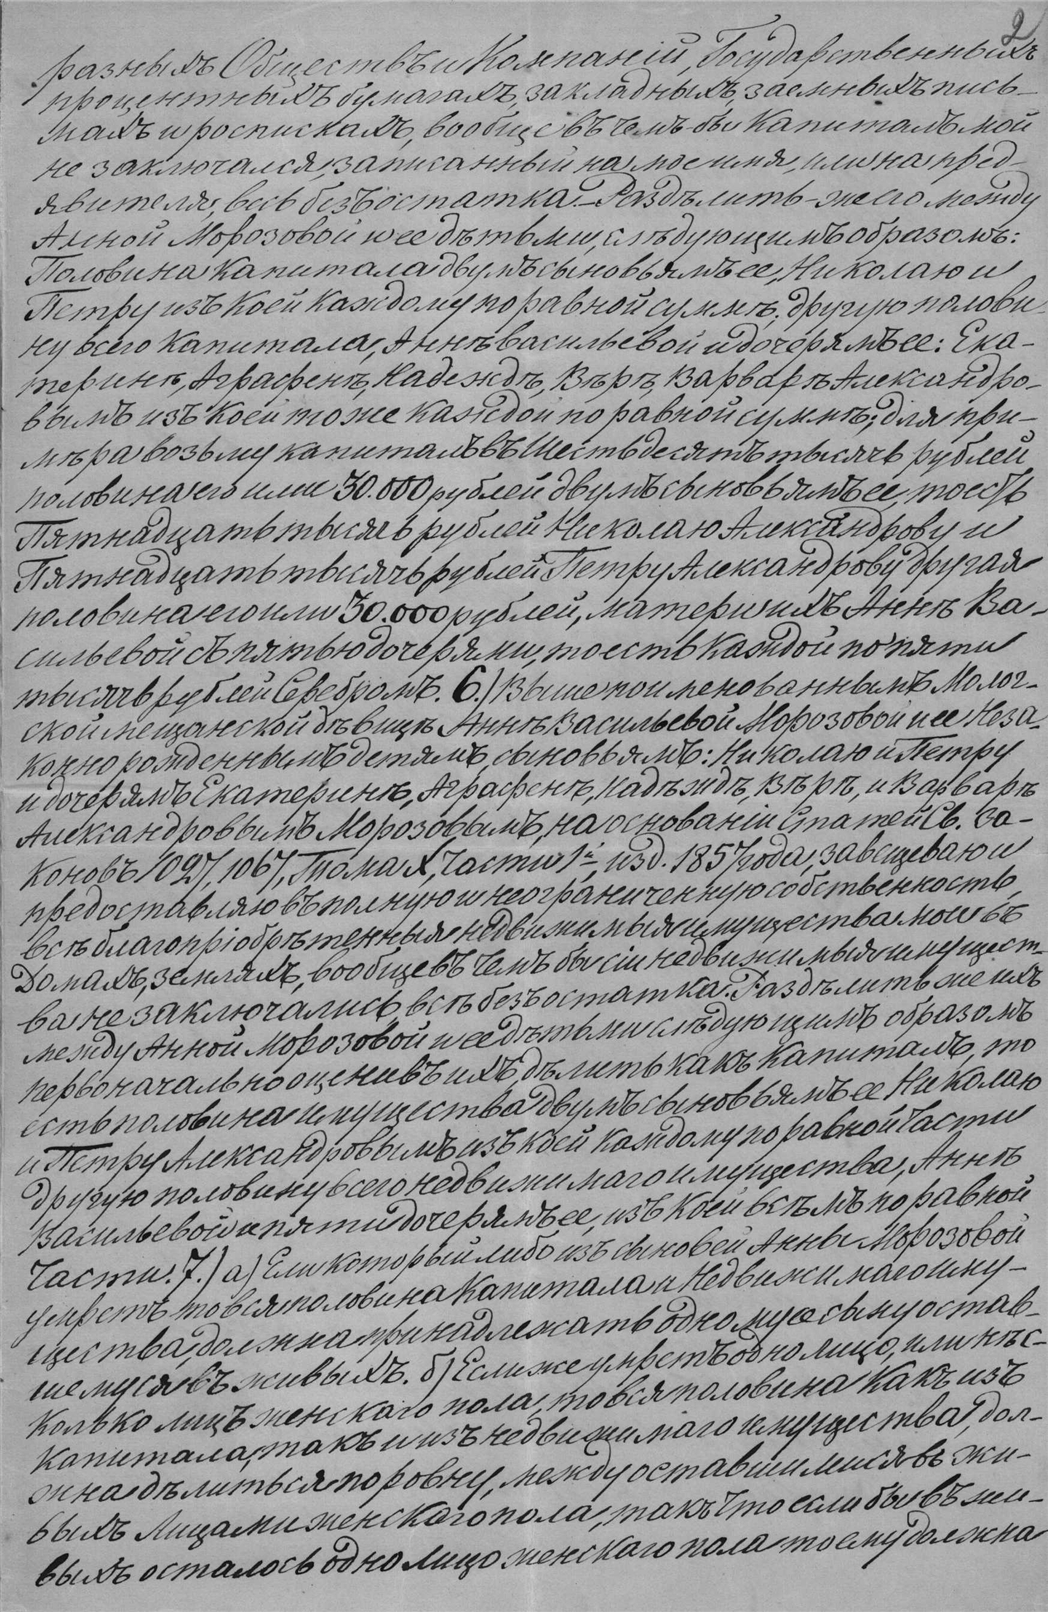 2
разныхъ Обществъ и Компаній, Государственныхъ
процентныхъ бумагахъ, закладныхъ, заемныхъ пись-
махъ и роспискахъ, вообще въ чемъ-бы Капиталъ мой
не заключался, записанный на мое имя, или на пред-
явителя, весь безъ остатка. – Раздѣлить-же его между
Анной Морозовой и ее дѣтьми, слѣдующимъ образомъ:
Половина Капитала двумъ сыновьямъ ее, Николаю и
Петру изъ коей каждому по равной суммѣ; другую полови-
ну всего Капитала, Аннѣ Васильевой и дочерямъ ее: Ека-
теринѣ, Аграфенѣ, Надеждѣ, Вѣрѣ, Варварѣ Александро-
вымъ изъ коей тоже каждой по равной суммѣ; для при-
мѣра возьму капиталъ въ Шестьдесятъ тысячъ рублей
половина его или 30.000 рублей двумъ сыновьямъ ее, тоесть
Пятнадцать тысячъ рублей Николаю Александрову и
Пятнадцать тысячъ рублей Петру Александрову другая
половина его или 30.000 рублей, матери ихъ Аннѣ Ва-
сильевой съ пятью дочерями, то есть Каждой по пяти
тысячъ рублей Серебромъ. 6.) Вышепоименованнымъ Молог-
ской мещанской дѣвицѣ Аннѣ Васильевой Морозовой и ее Неза-
конно рожденнымъ детямъ, сыновьямъ: Николаю и Петру
и дочерямъ Екатеринѣ, Аграфенѣ, Надѣждѣ, Вѣрѣ, и Варварѣ
Александровымъ Морозовымъ, на основаніи Статей Св. За-
коновъ 1027, 1067, Тома X, Части 1й, изд. 1857 года, завещеваю и
предоставляю въ полную и неограниченную собственность,
всѣ благопріобрѣтенныя недвижимыя имущества мои въ
Домахъ, земляхъ, вообще въ чемъ бы сіи недвижимыя имущест-
ва не заключались, всѣ безъ остатка. Раздѣлить же ихъ
между Анной Морозовой и ее дѣтьми слѣдующимъ образомъ
первоначально оценивъ ихъ, дѣлить какъ капиталъ, то
есть половина имущества двумъ сыновьямъ ее Николаю
и Петру Александровымъ изъ коей каждому по равной части
другую половину всего недвижимаго имущества, Аннѣ
Васильевой и пяти дочерямъ ее, изъ коей всѣмъ по равной
части. 7.) а) Если который либо изъ сыновей Анны Морозовой
умретъ то вся половина Капитала и Недвижимаго иму-
щества, должна принадлежать одному ее сыну остав-
шемуся въ живыхъ. б) Если же умретъ одно лицо, или нѣс-
колько лицъ женскаго пола, то вся половина какъ изъ
капитала, такъ и изъ недвижимаго имущества, дол-
жна дѣлиться поровну, между оставшимися въ жи-
выхъ лицами женскаго пола, такъ что если бы въ жи-
выхъ осталось одно лицо женскаго пола то ему должна